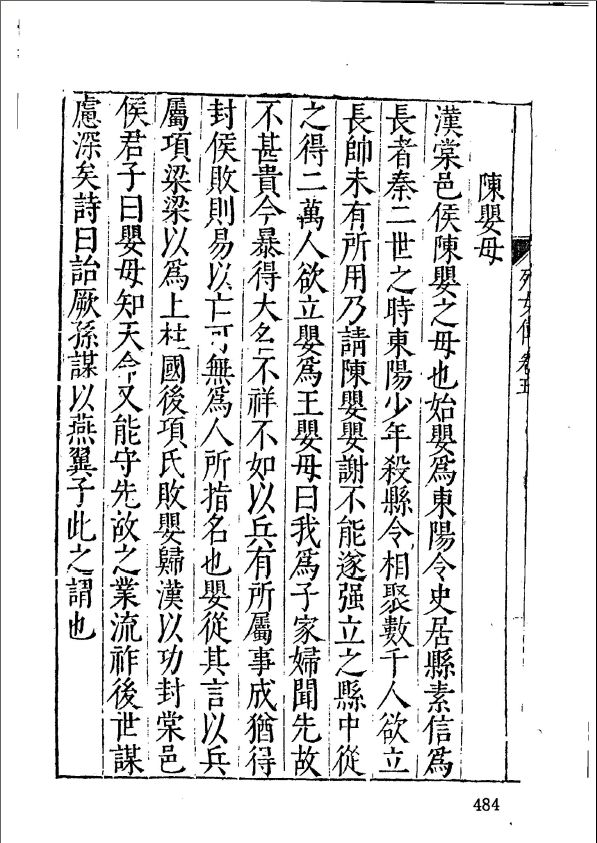 列女傳卷五
陳嬰母
漢棠邑侯陳嬰之母也始嬰為東陽令史居縣素信為
長者秦二世之時東陽少年殺縣令相聚數千人欲立
長帥未有所用乃請陳嬰嬰謝不能遂强立之縣中從
之得二萬人欲立嬰為王嬰母曰我為子家婦聞先故
不甚貴今暴得大名不祥不如以兵有所屬事成猶得
封侯敗則易以亡可無為人所指名也嬰從其言以兵
屬項梁梁以為上柱國後項氏敗嬰歸漢以功封棠邑
侯君子曰嬰母知天命又能守先故之業流祚後世謀
慮深矣詩曰詒厥孫謀以燕翼子此之謂也
484